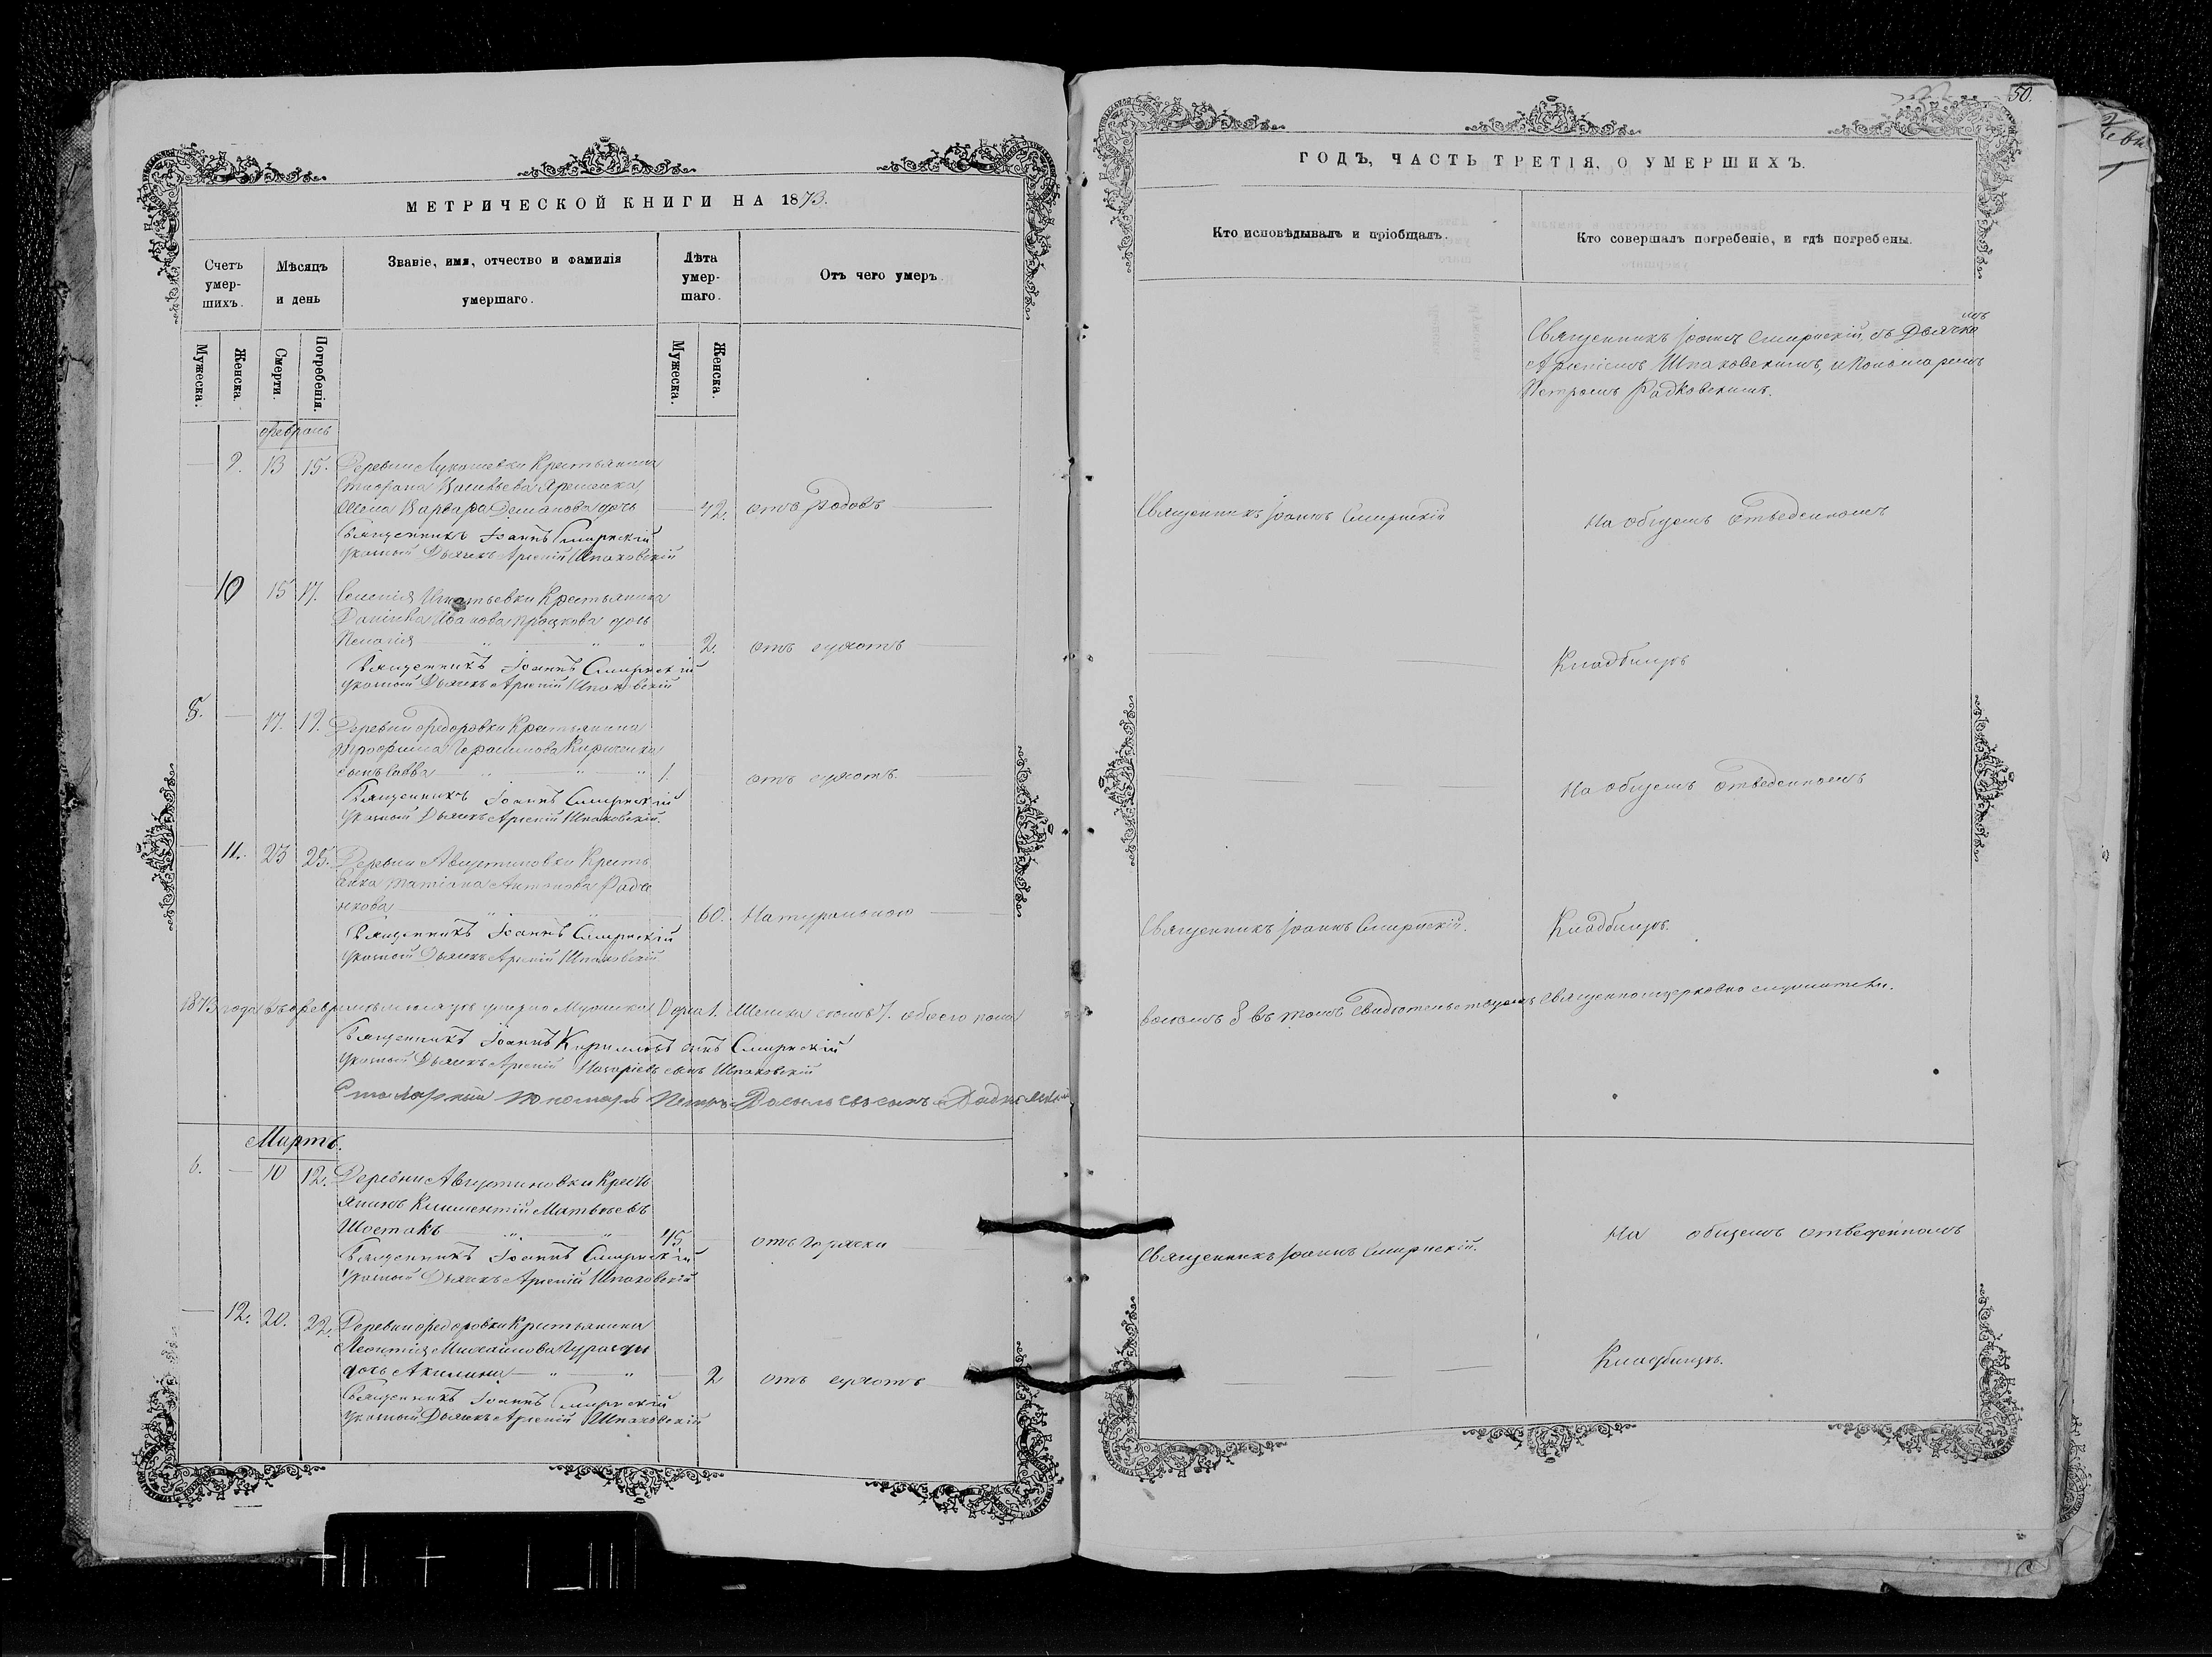 МЕТРИЧЕСКОЙ КНИГИ НА 1873.
Счетъ умер-шихъ.
Мѣсяцъ и день
Званіе, имя, отчество и фамилія умершаго.
Лѣта умер-шаго.
Отъ чего умеръ.
Мужеска.
Женска.
Смерти.
Погребенія.
Мужеска.
Женска.
февраль
9. 13 15. Деревни Крестьянина
Васильева
Жена Варвара дочь 42. отъ родовъ
Священникъ Іоаннъ Смирнскій
Дьячекъ Арсеній Шпаковскій
10 15 17. Селенія Игнатьевки Крестьянина
Даніила Иванова дочь
2. отъ сухотъ
Священникъ Іоаннъ Смирнскій
Дьячекъ Арсеній Шпаковскій
17. 19. Деревни Федоровки Крестьянина
Трофима Герасимова Кириченка
сынъ Савва 1. отъ сухотъ
Священникъ Іоаннъ Смирнскій
Дьячекъ Арсеній Шпаковскій.
11. 23 25. Деревни Августиновки Кресть
янка Антонова Радче
нкова 60. Натуральною
Священникъ Іоаннъ Смирнскій
Дьячекъ Арсеній Шпаковскій
1873 года въ февралѣ мѣсяцѣ Мужска 1. Женска обоего пола
Священникъ Іоаннъ Кирилловъ сынъ Смирнскій
Дьячекъ Арсеній сынъ Шпаковскій
Пономарь Петръ Васильевъ сынъ
Мартъ.
6. 10 12. Деревни Августиновки Кресть
янинъ Климентій Матвѣевъ
Шостакъ 45 отъ горячки
Священникъ Іоаннъ Смирнскій
Дьячекъ Арсеній Шпаковскій
12. 20. 22. Деревни Федоровки Крестьянина
Леонтія Михайлова
дочь Акилина 2 отъ сухотъ
Священникъ Іоаннъ Смирнскій
Дьячекъ Арсеній Шпаковскій
50.
ГОДЪ, ЧАСТЬ ТРЕТІЯ, О УМЕРШИХЪ.
Кто исповѣдывалъ и пріобщалъ.
Кто совершалъ погребеніе, и гдѣ погребены.
Священникъ Іоаннъ Смирнскій, съ Дьячкомъ
Арсеніемъ Шпаковскимъ, и Пономаремъ
Петромъ Радковскимъ.
Священникъ Іоаннъ Смирнскій На общемъ отведенномъ
Кладбищѣ
На общемъ отведенномъ
Священникъ Іоаннъ Смирнскій. Кладбищѣ.
восемь 8 въ томъ свидѣтельствуемъ священно и церковно служители.
Священникъ Іоаннъ Смирнскій. На общемъ отведенномъ
Кладбищѣ.